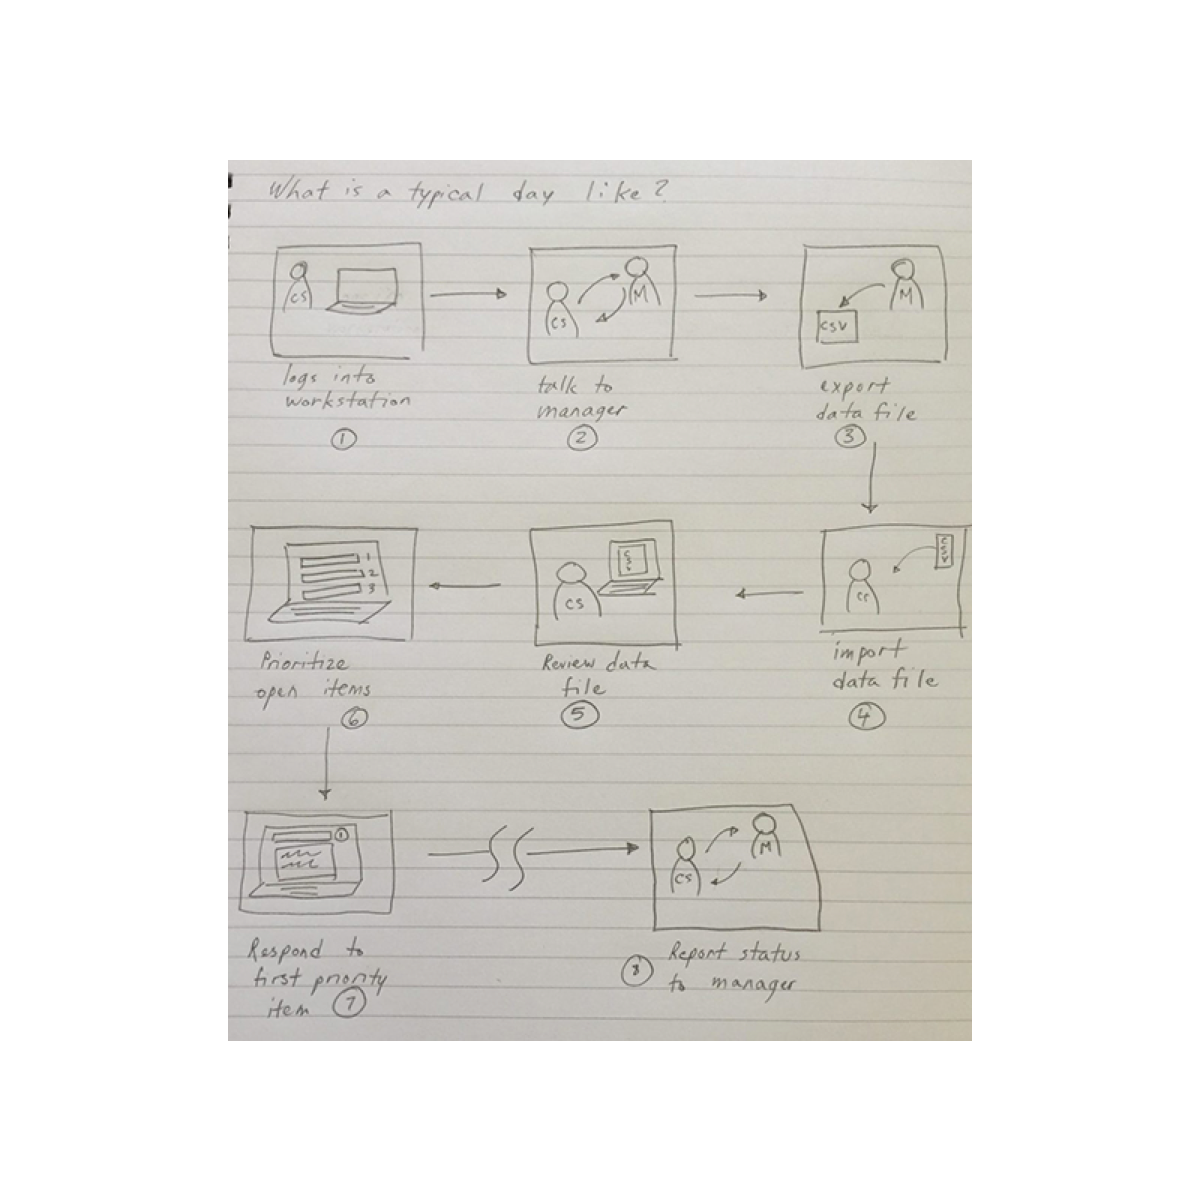 What is a typical day like?
CS
logs into
workstation
1
CS
M
talk to
manager
2
M
CSV
export
data file
3
1
2
3
Prioritize
open items
6
CS
CSV
Review data
file
5
CSV
import
data file
4
1
Respond to
first priority
item 7
CS
M
8 Report status
to manager